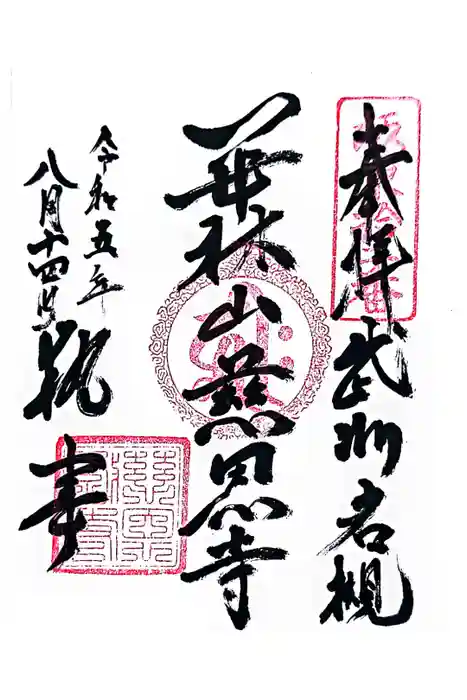 奉拝 武州岩槻
華林山慈恩寺
令和五年
八月十四日 執事